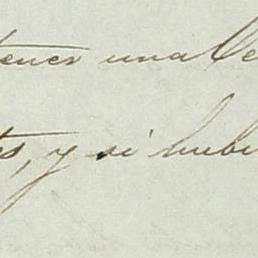 tener una Ve
s, y si hubi